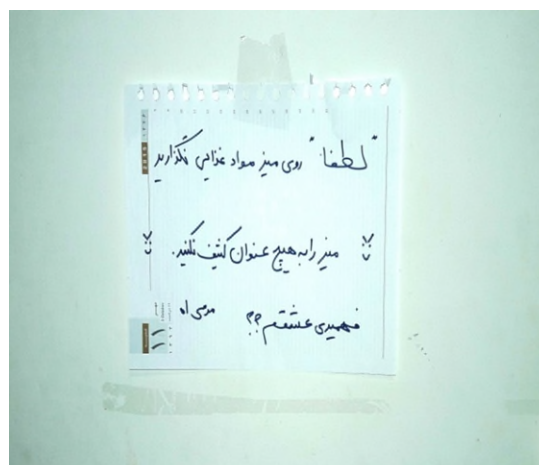 "لطفا" روی میز مواد غذایی نگذارید
میز را به هیچ عنوان کثیف نکنید.
فهمیدی عشقم؟؟